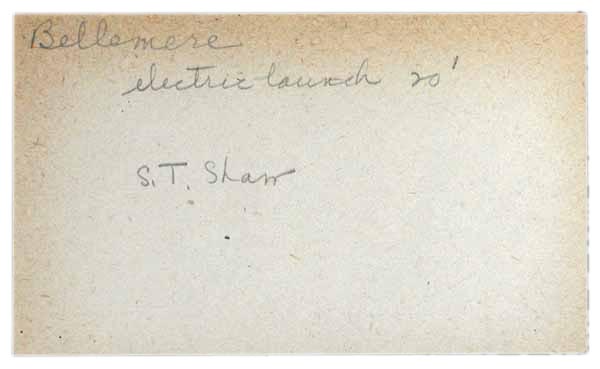 Bellemere
electric launch 20'
S.T. Shaw